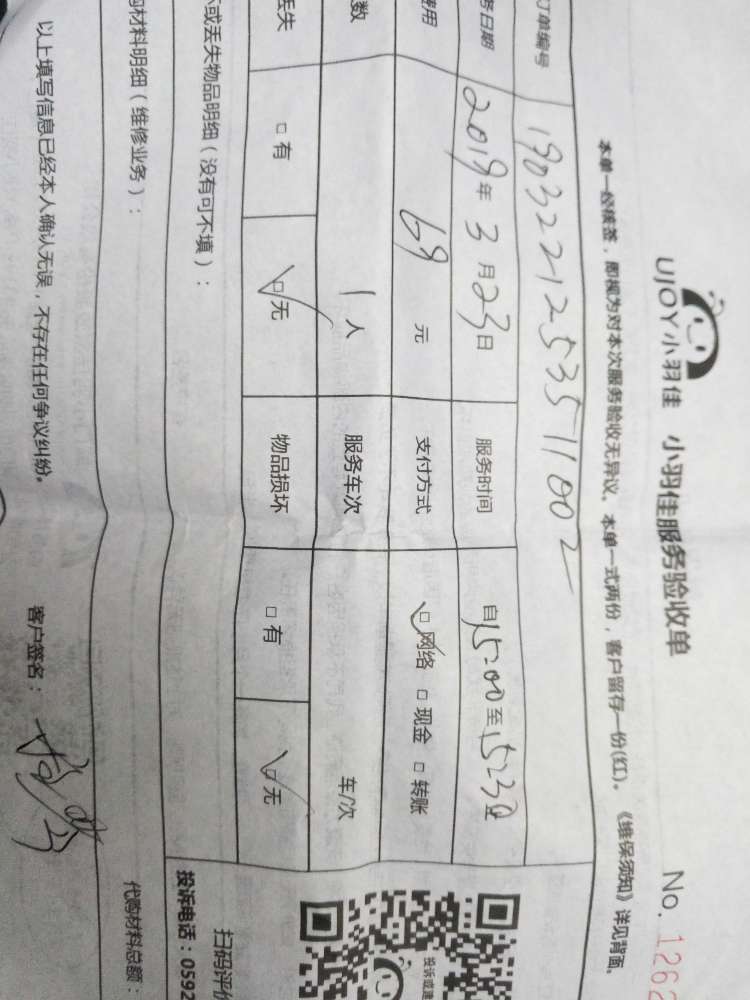 UJOY小羽佳 小羽佳服务验收单
No. 126
本单一经核签,即视为对本次服务验收无异议。本单一式两份,客户留存一份(红)。《维保须知》详见背面。
订单编号 1903221253511002
务日期 2019年3月23日 服务时间 自15:00至15:30
费用 69 元 支付方式 ☑网络 □现金 □转账
数 1人 服务车次 车/次
丢失 □有 ☑无 物品损坏 □有 ☑无
或丢失物品明细(没有可不填):
购材料明细(维修业务):
代购材料总额:
以上填写信息已经本人确认无误,不存在任何争议纠纷。
客户签名:
投诉或建
扫码评价
投诉电话:0592